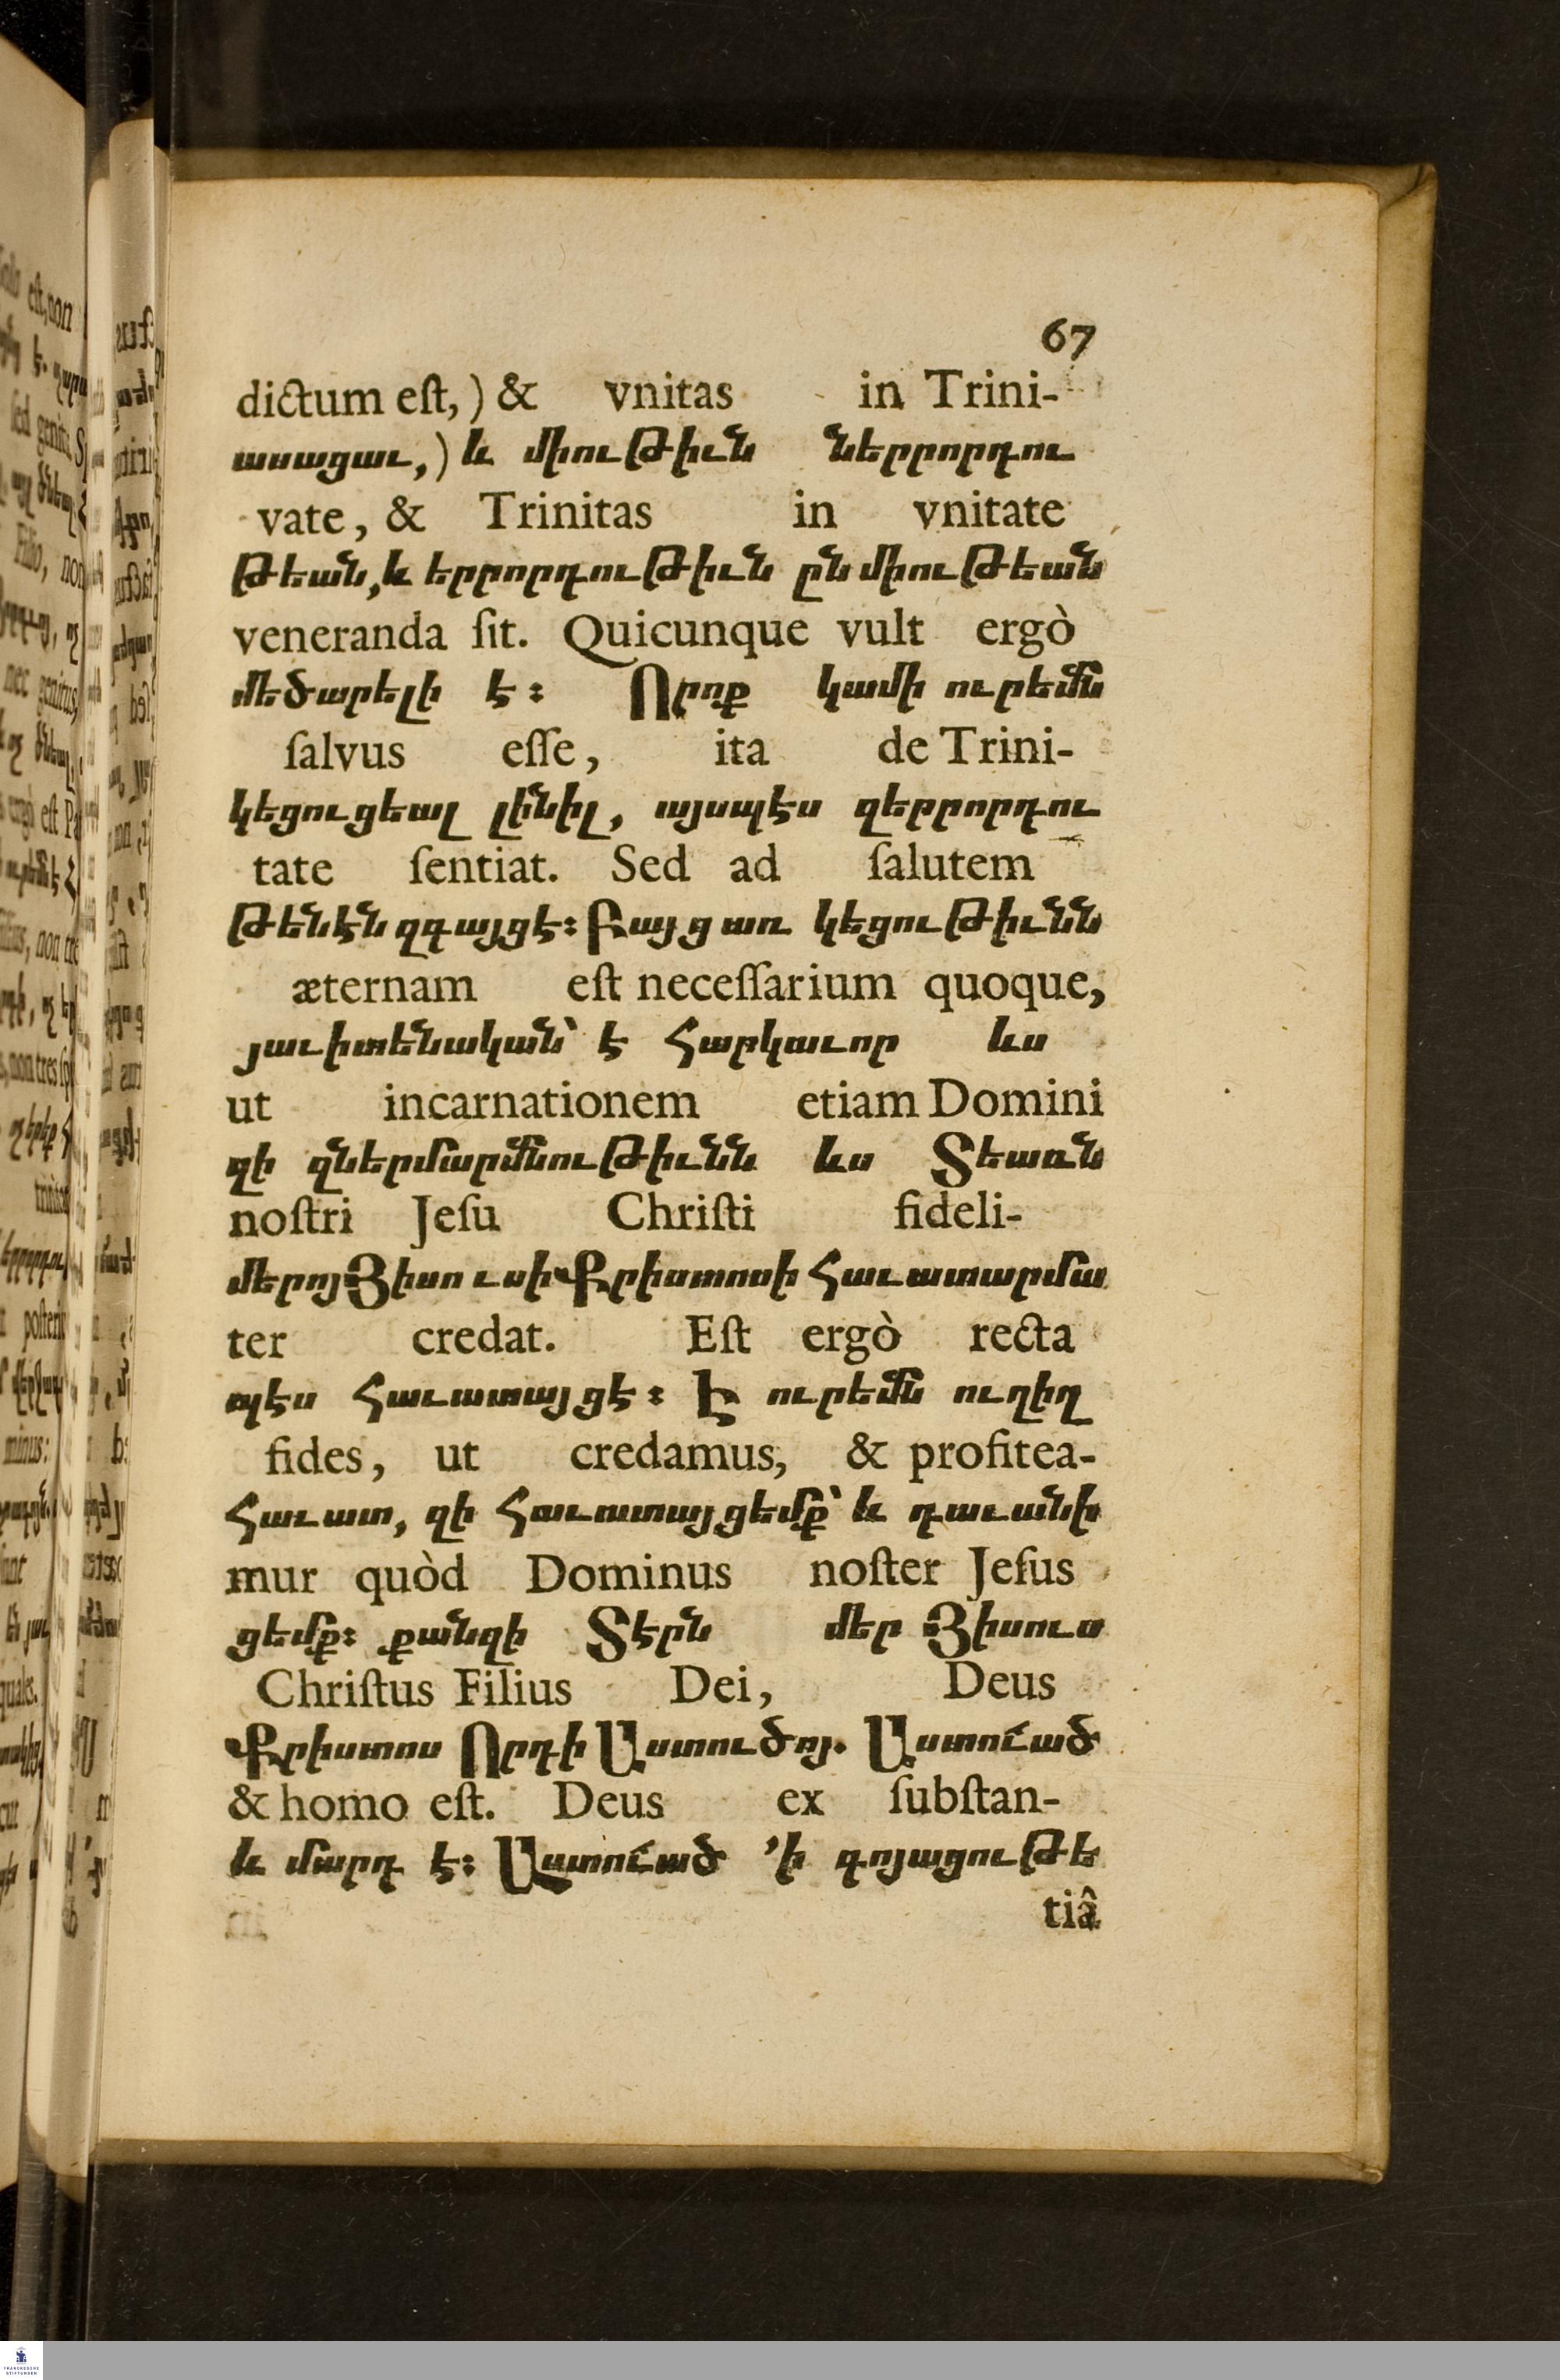 67
dictum eſt,) & vnitas in Trini-
ասացաւ,) և միութիւն ներրորդու
vate, & Trinitas in vnitate
թեան, և երրորդութիւն ըն միութեան
veneranda ſit. Quicunque vult ergò
մեծարելի է։ Որոք կամի ուրեմն
ſalvus eſſe, ita de Trini-
կեցուցեալ լինիլ, այսպէս զերրորդու
tate ſentiat. Sed ad ſalutem
թենէն զգայցէ։ Բայց առ կեցութիւնն
æternam eſt neceſſarium quoque,
յաւիտենական՝ է հարկաւոր ևս
ut incarnationem etiam Domini
զի զներմարմնութիւնն ևս Տեառն
noſtri Jeſu Chriſti fideli-
մերոյ Յիսուսի Քրիստոսի հաւատարմա
ter credat. Eſt ergò recta
պէս հաւատայցէ։ Է ուրեմն ուղիղ
fides, ut credamus, & profitea-
հաւատ, զի հաւատայցեմք՝ և դաւանի
mur quòd Dominus noſter Jeſus
ցեմք։ քանզի Տէրն մեր Յիսուս
Chriſtus Filius Dei, Deus
Քրիստոս Որդի Աստուծոյ. Աստուած
& homo eſt. Deus ex ſubſtan-
և մարդ է։ Աստուած ՚ի գոյացութե
tiâ